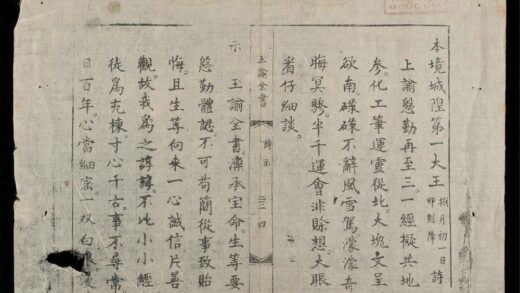 本境城隍第一大王 捌月初一日卯刻降 詩
上諭慇勤再至三一經擬共地
參化工筆運靈從北大塊文呈
欲南碌碌不辭風雪駕濛濛奇
晦冥驂半千運會非賒想大眼
看仔細談。
玉諭全書
示 玉諭全書。凜承宝命。生等要
慇勤體認不可苟簡從事致貽
悔。且生等向來一心誠信片善
觀。故我爲之諄諄。不比小小經
徒爲充棟。寸心千古。事不尋常
日百年。心當細密。一双白